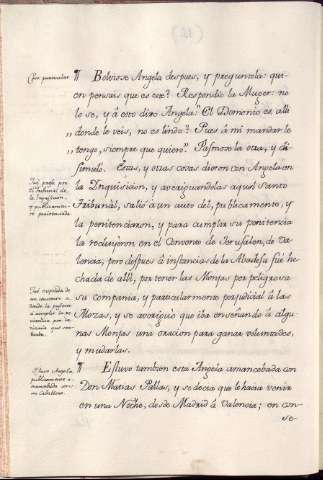 ¶ Bolviose Angela despues, y preguntola: qui-
en pensais que es ese? Respondio la Muger: no
lo se, y â esto dixo Angela: El Demonio es alli
„ donde le veis, no es lindo? Pues â mi mandar le
„ tengo, siempre que quiero. Pasmose la otra, y di-
simulo. Estas, y otras cosas dieron con Angela en
la Inquisicion, y averiguandolas aquel Santo
Tribunal, salió a un auto de fe, publicamente, y
la penitenciaron, y para cumplir su penitencia
la recluyeron en el Convento de Jerusalen, de Va-
lencia, pero despues â instancias de la Abadesa fue he-
chada de alli, por tener las Monjas por peligrosa
su compania, y particularmente perjudicial â las
Mozas, y se averiguó que iba enseñando â algu-
nas Monjas una oracion para ganar voluntades,
y mudarlas.
¶ Estuvo tambien esta Angela amancebada con
Don Matias Pallas, y se decia que le hacia venir
en una Noche, desde Madrid â Valencia; en con-
se-
Fue presa por
el Tribunal de
la Inquisicion,
y publicamen-
te penitenciada
Fue expelida de
un convento a
donde la pusieron
a cumplir la pe-
nitencia
Estuvo Angela
publicamente a-
mancebada con
un Caballero.